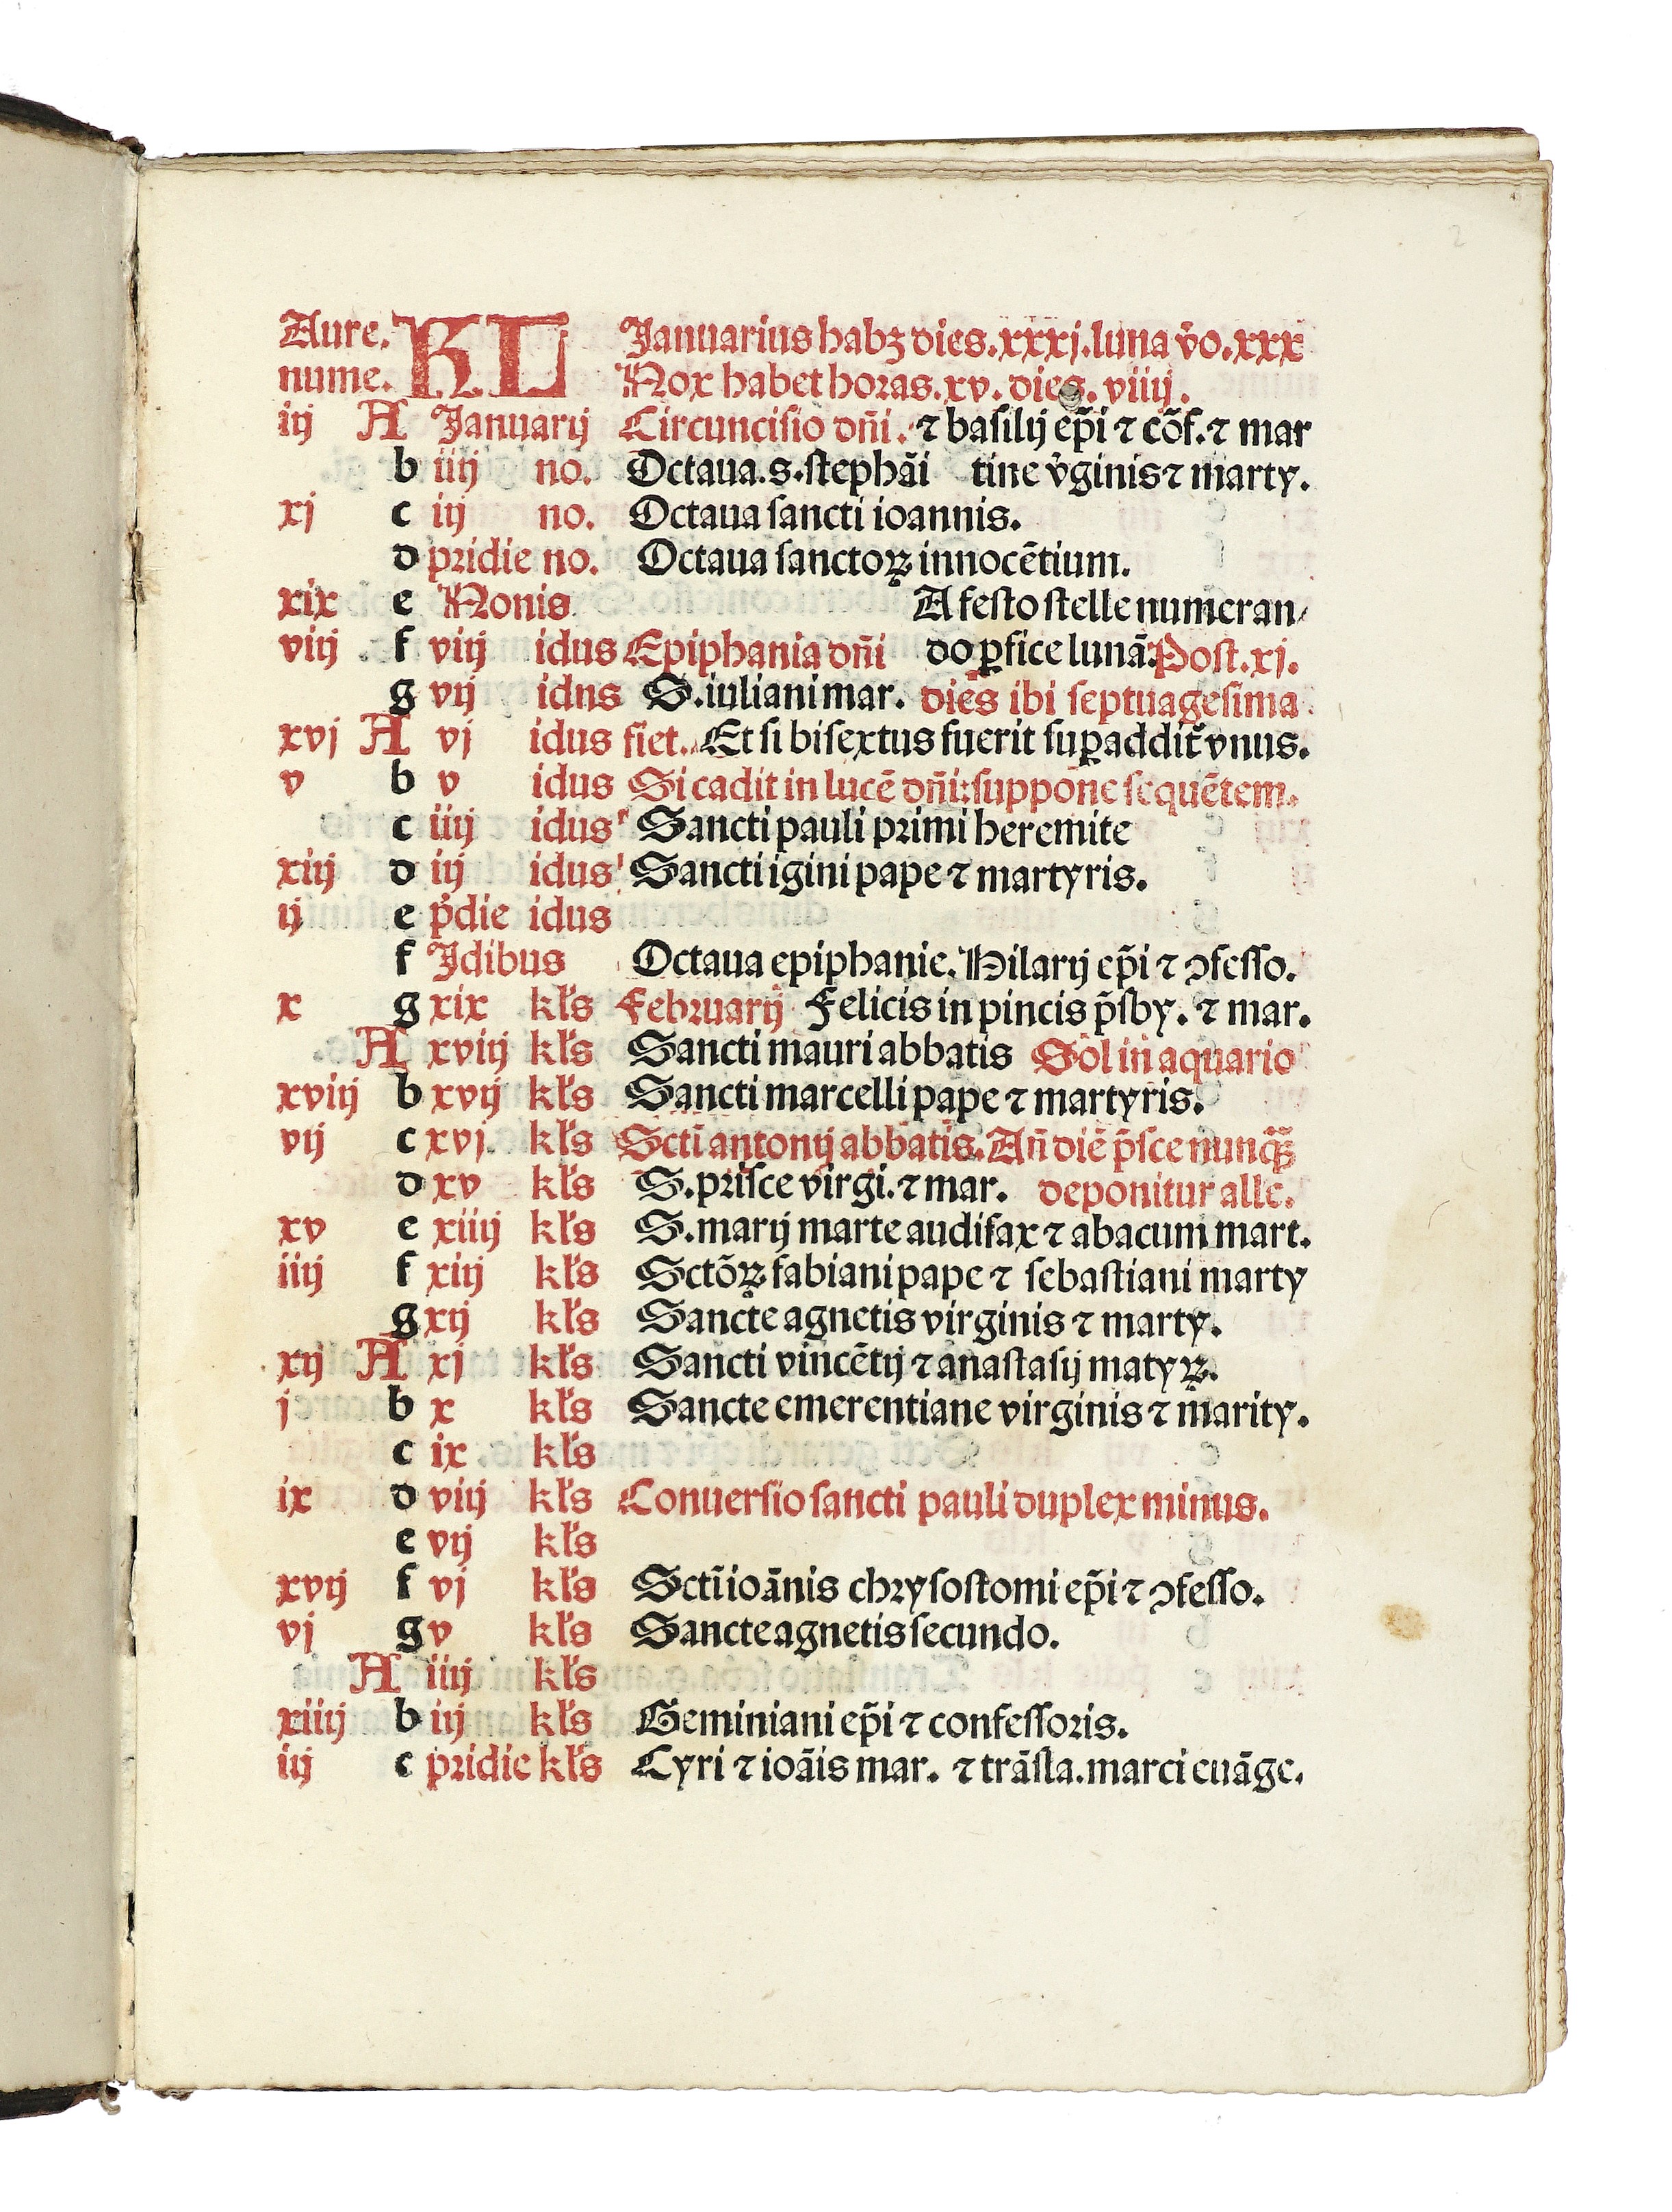 Aure. KL Januarius habꝫ dies.xxxj.luna v̾o.xxx
nume. Nox habet horas.xv. dies. viiij.
iij A Januarij Circuncisio dñi. ⁊ basilij ep̃i ⁊ cõf. ⁊ mar
b iiij no. Octaua.s.stephãi tine v̾ginis ⁊ marty.
xj c iij no. Octaua sancti ioannis.
d pridie no. Octaua sanctoꝝ innocẽtium.
xix e Nonis A festo stelle numeran/
viij f viij idus Epiphania dñi do ꝑfice lunã: Post.xj.
g vij idns S.iuliani mar. dies ibi septuagesima
xvj A vj idus fiet. Et si bisextus fuerit suꝑaddit᷑ vnus.
v b v idus Si cadit in lucẽ dñi: suppone sequẽtem.
c iiij idus Sancti pauli primi heremite
xiij d iij idus Sancti igini pape ⁊ martyris.
ij e p̾die idus
f Idibus Octaua epiphanie. Hilarij ep̃i ⁊ ꝯfesso.
x g xix kl̓s Februarij Felicis in pincis p̃sby. ⁊ mar.
A xviij kl̓s Sancti mauri abbatis Sol in aquario
xviij b xvij kl̓s Sancti marcelli pape ⁊ martyris.
vij c xvj. kl̓s Scti antonij abbatis. Añ diẽ p̃sce nunq̃ꝫ
d xv kl̓s S.prisce virgi. ⁊ mar. deponitur alle.
xv e xiiij kl̓s S.marij marte audifax ⁊ abacum mart.
iiij f xiij kl̓s Sctõꝝ fabiani pape ⁊ sebastiani marty
g xij kl̓s Sancte agnetis virginis ⁊ marty.
xij A xj kl̓s Sancti vincẽtij ⁊ anastasij matyꝝ.
j b x kl̓s Sancte emerentiane virginis ⁊ marity.
c ix kl̓s
ix d viij kl̓s Conuersio sancti pauli duplex minus.
e vij kl̓s
xvij f vj kl̓s Scti ioãnis chrysostomi ep̃i ⁊ ꝯfesso.
vj g v kl̓s Sancte agnetis secundo.
A iiij kl̓s
xiiij b iij kl̓s Geminiani ep̃i ⁊ confessoris.
iij c pridie kl̓s Cyri ⁊ ioãis mar. ⁊ trãsla.marci euãge.